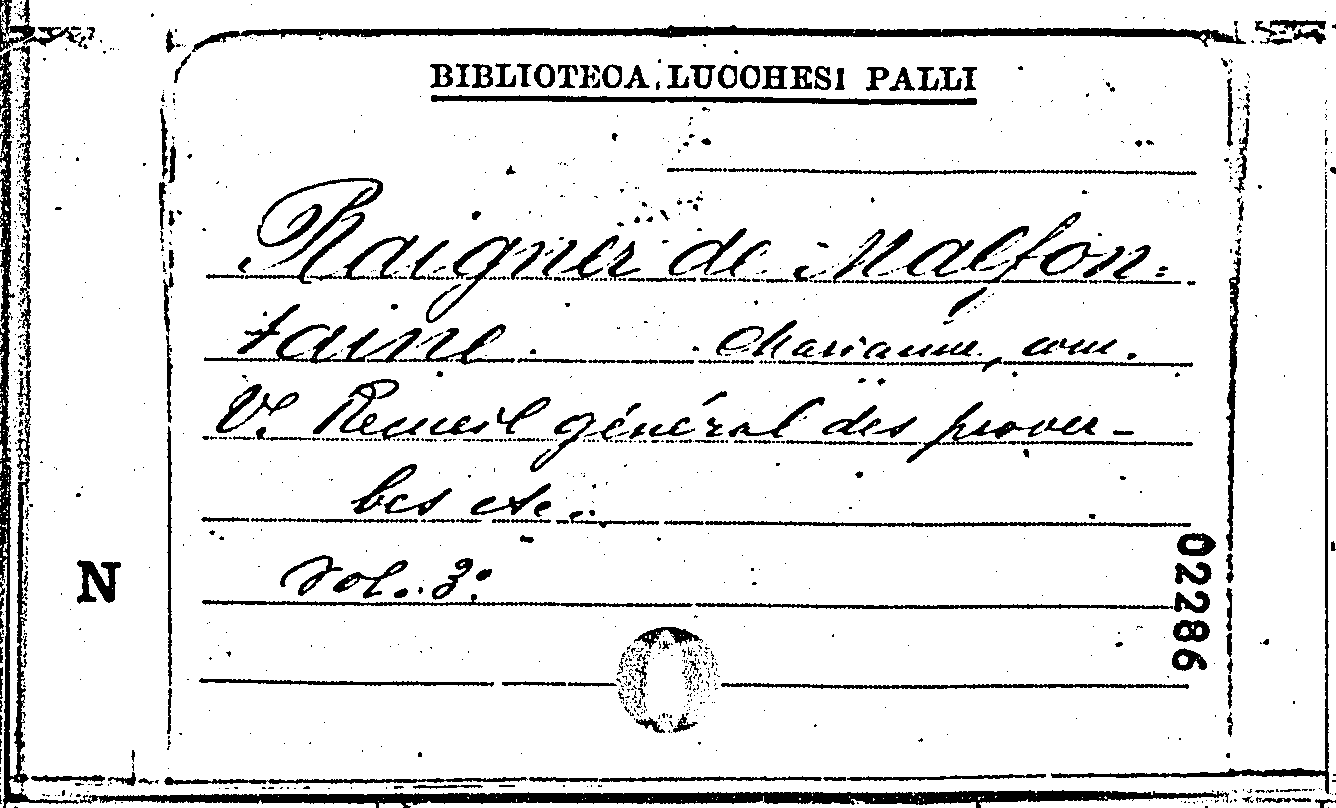 BIBLIOTECA LUCCHESI PALLI
Raigner de Malfon=
taine. Marianne, com.
V. Recueil général des prover-
bes etc..
Vol. 3º
N
02286